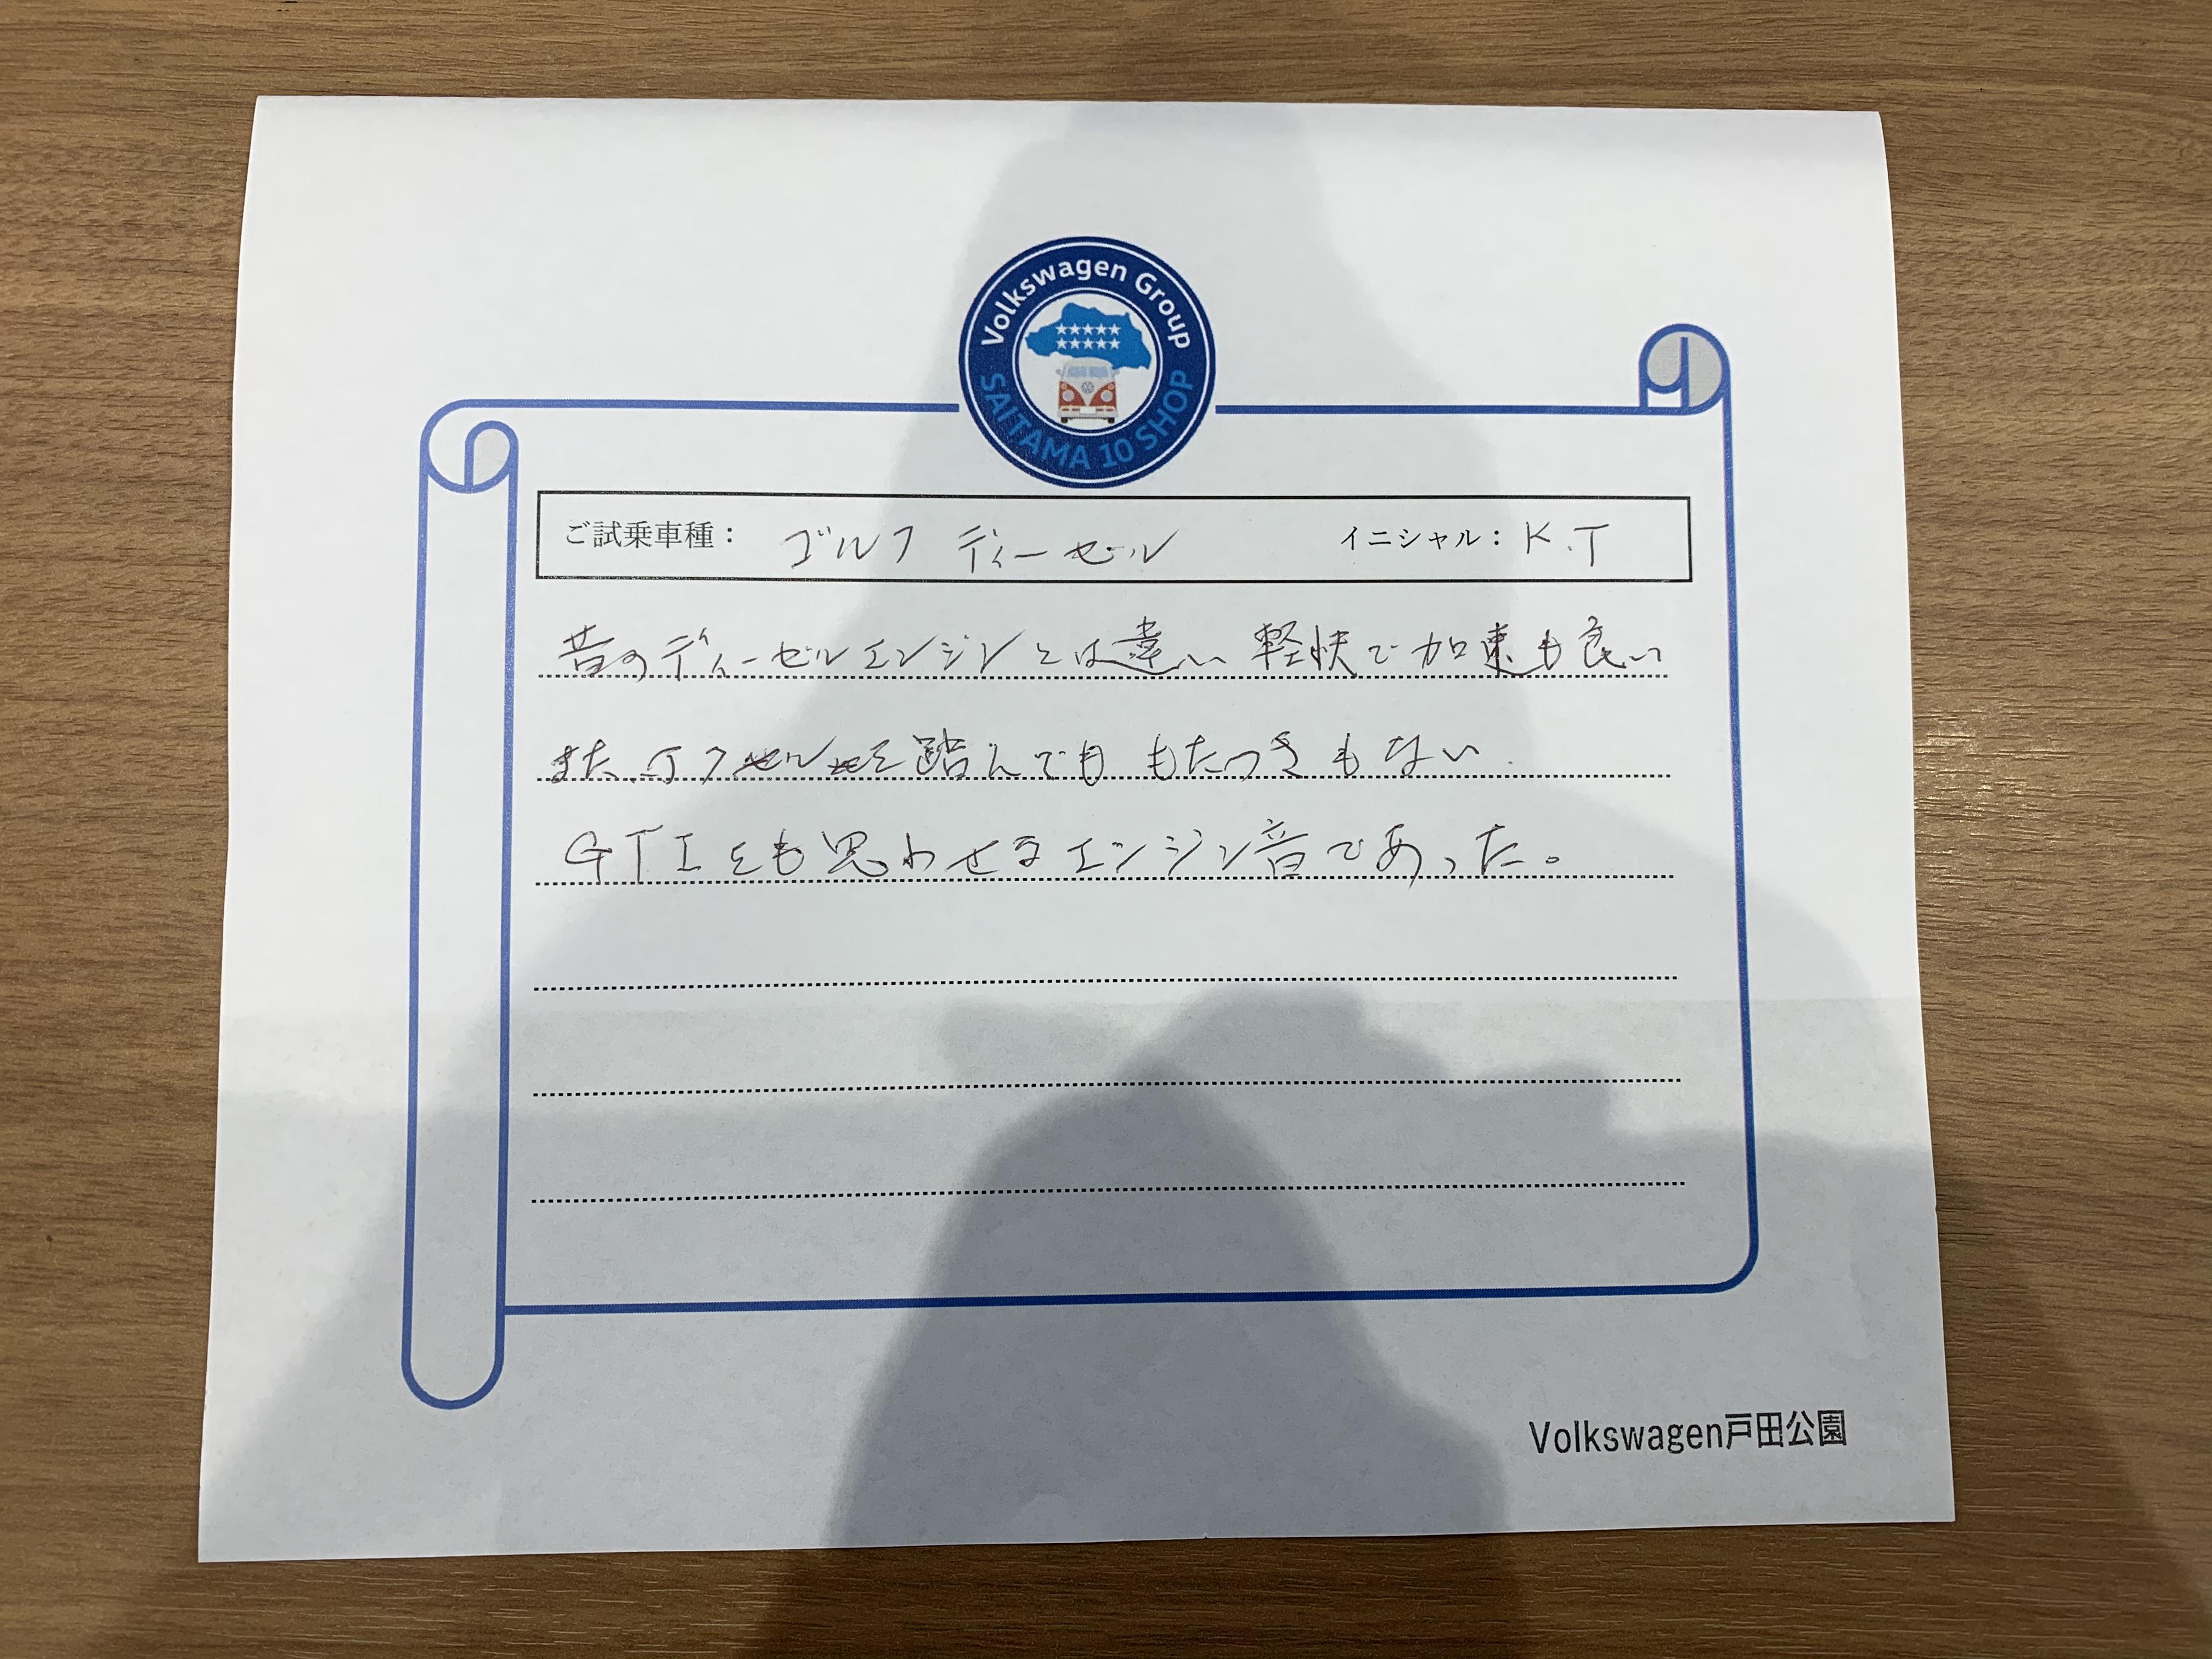 Volkswagen Group
SAITAMA 10 SHOP
ご試乗車種： ゴルフ ディーゼル イニシャル： K.T
昔のディーゼルエンジンとは違い 軽快で加速も良い
また、アクセルを踏んでも もたつきもない.
GTIをも思わせるエンジン音であった。
Volkswagen戸田公園